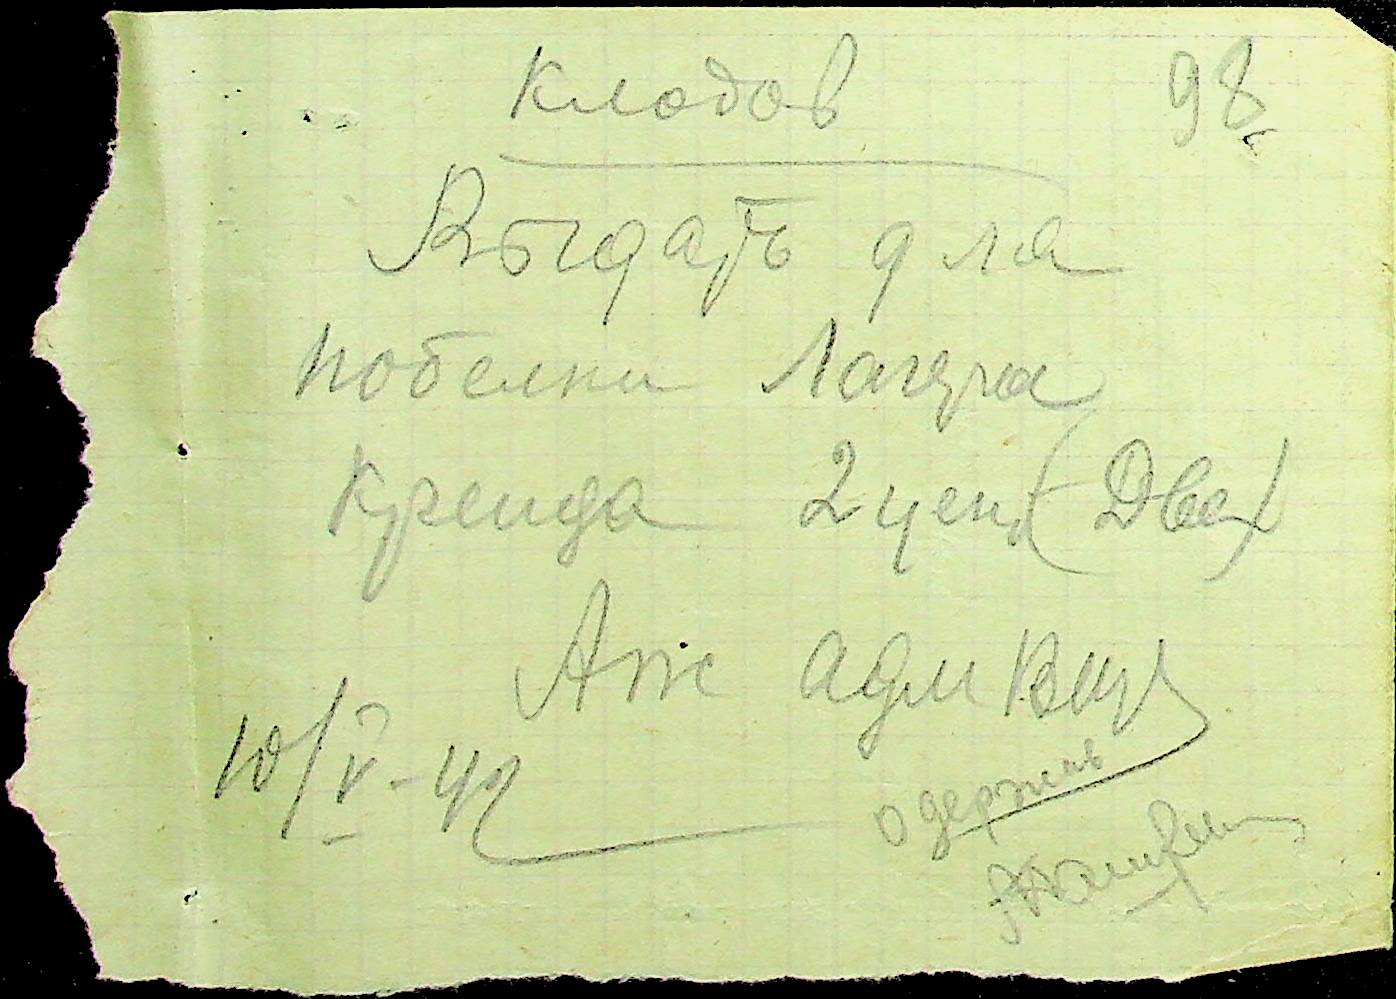 98
Кладов
Выдать для
побелки Лагеря
Крейда 2 цен. (Двех)
10/V-42
одержав